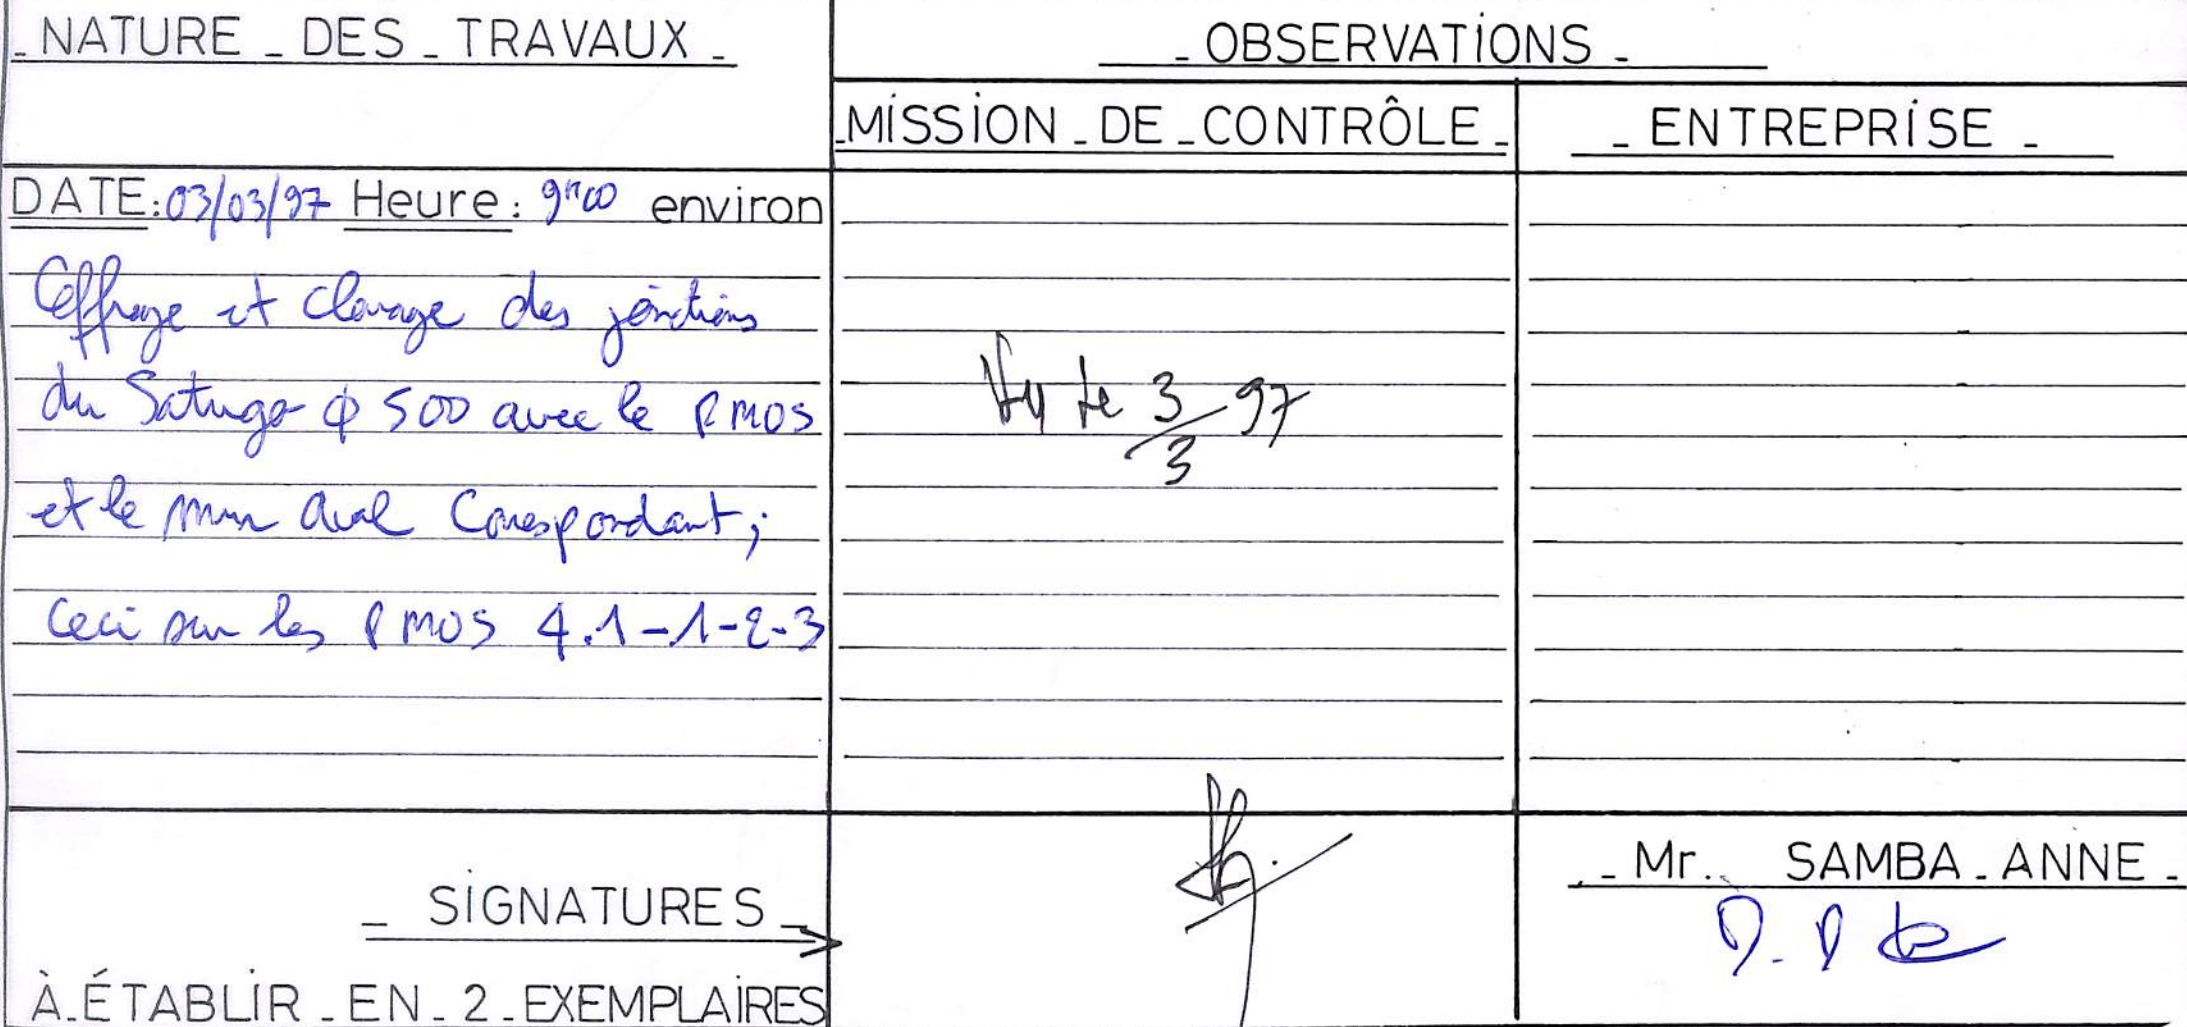 NATURE DES TRAVAUX
OBSERVATIONS
MISSION DE CONTRÔLE
ENTREPRISE
DATE: 03/03/97 Heure: 9h00 environ
Coffrage et clavage des jonctions
du Satuga ϕ 500 avec le PMOS
et le mur aval Correspondant;
Ceci sur les PMOS 4.1-1-2-3
Vu le 3/3 97
SIGNATURES
Mr. SAMBA ANNE
À ÉTABLIR EN 2 EXEMPLAIRES